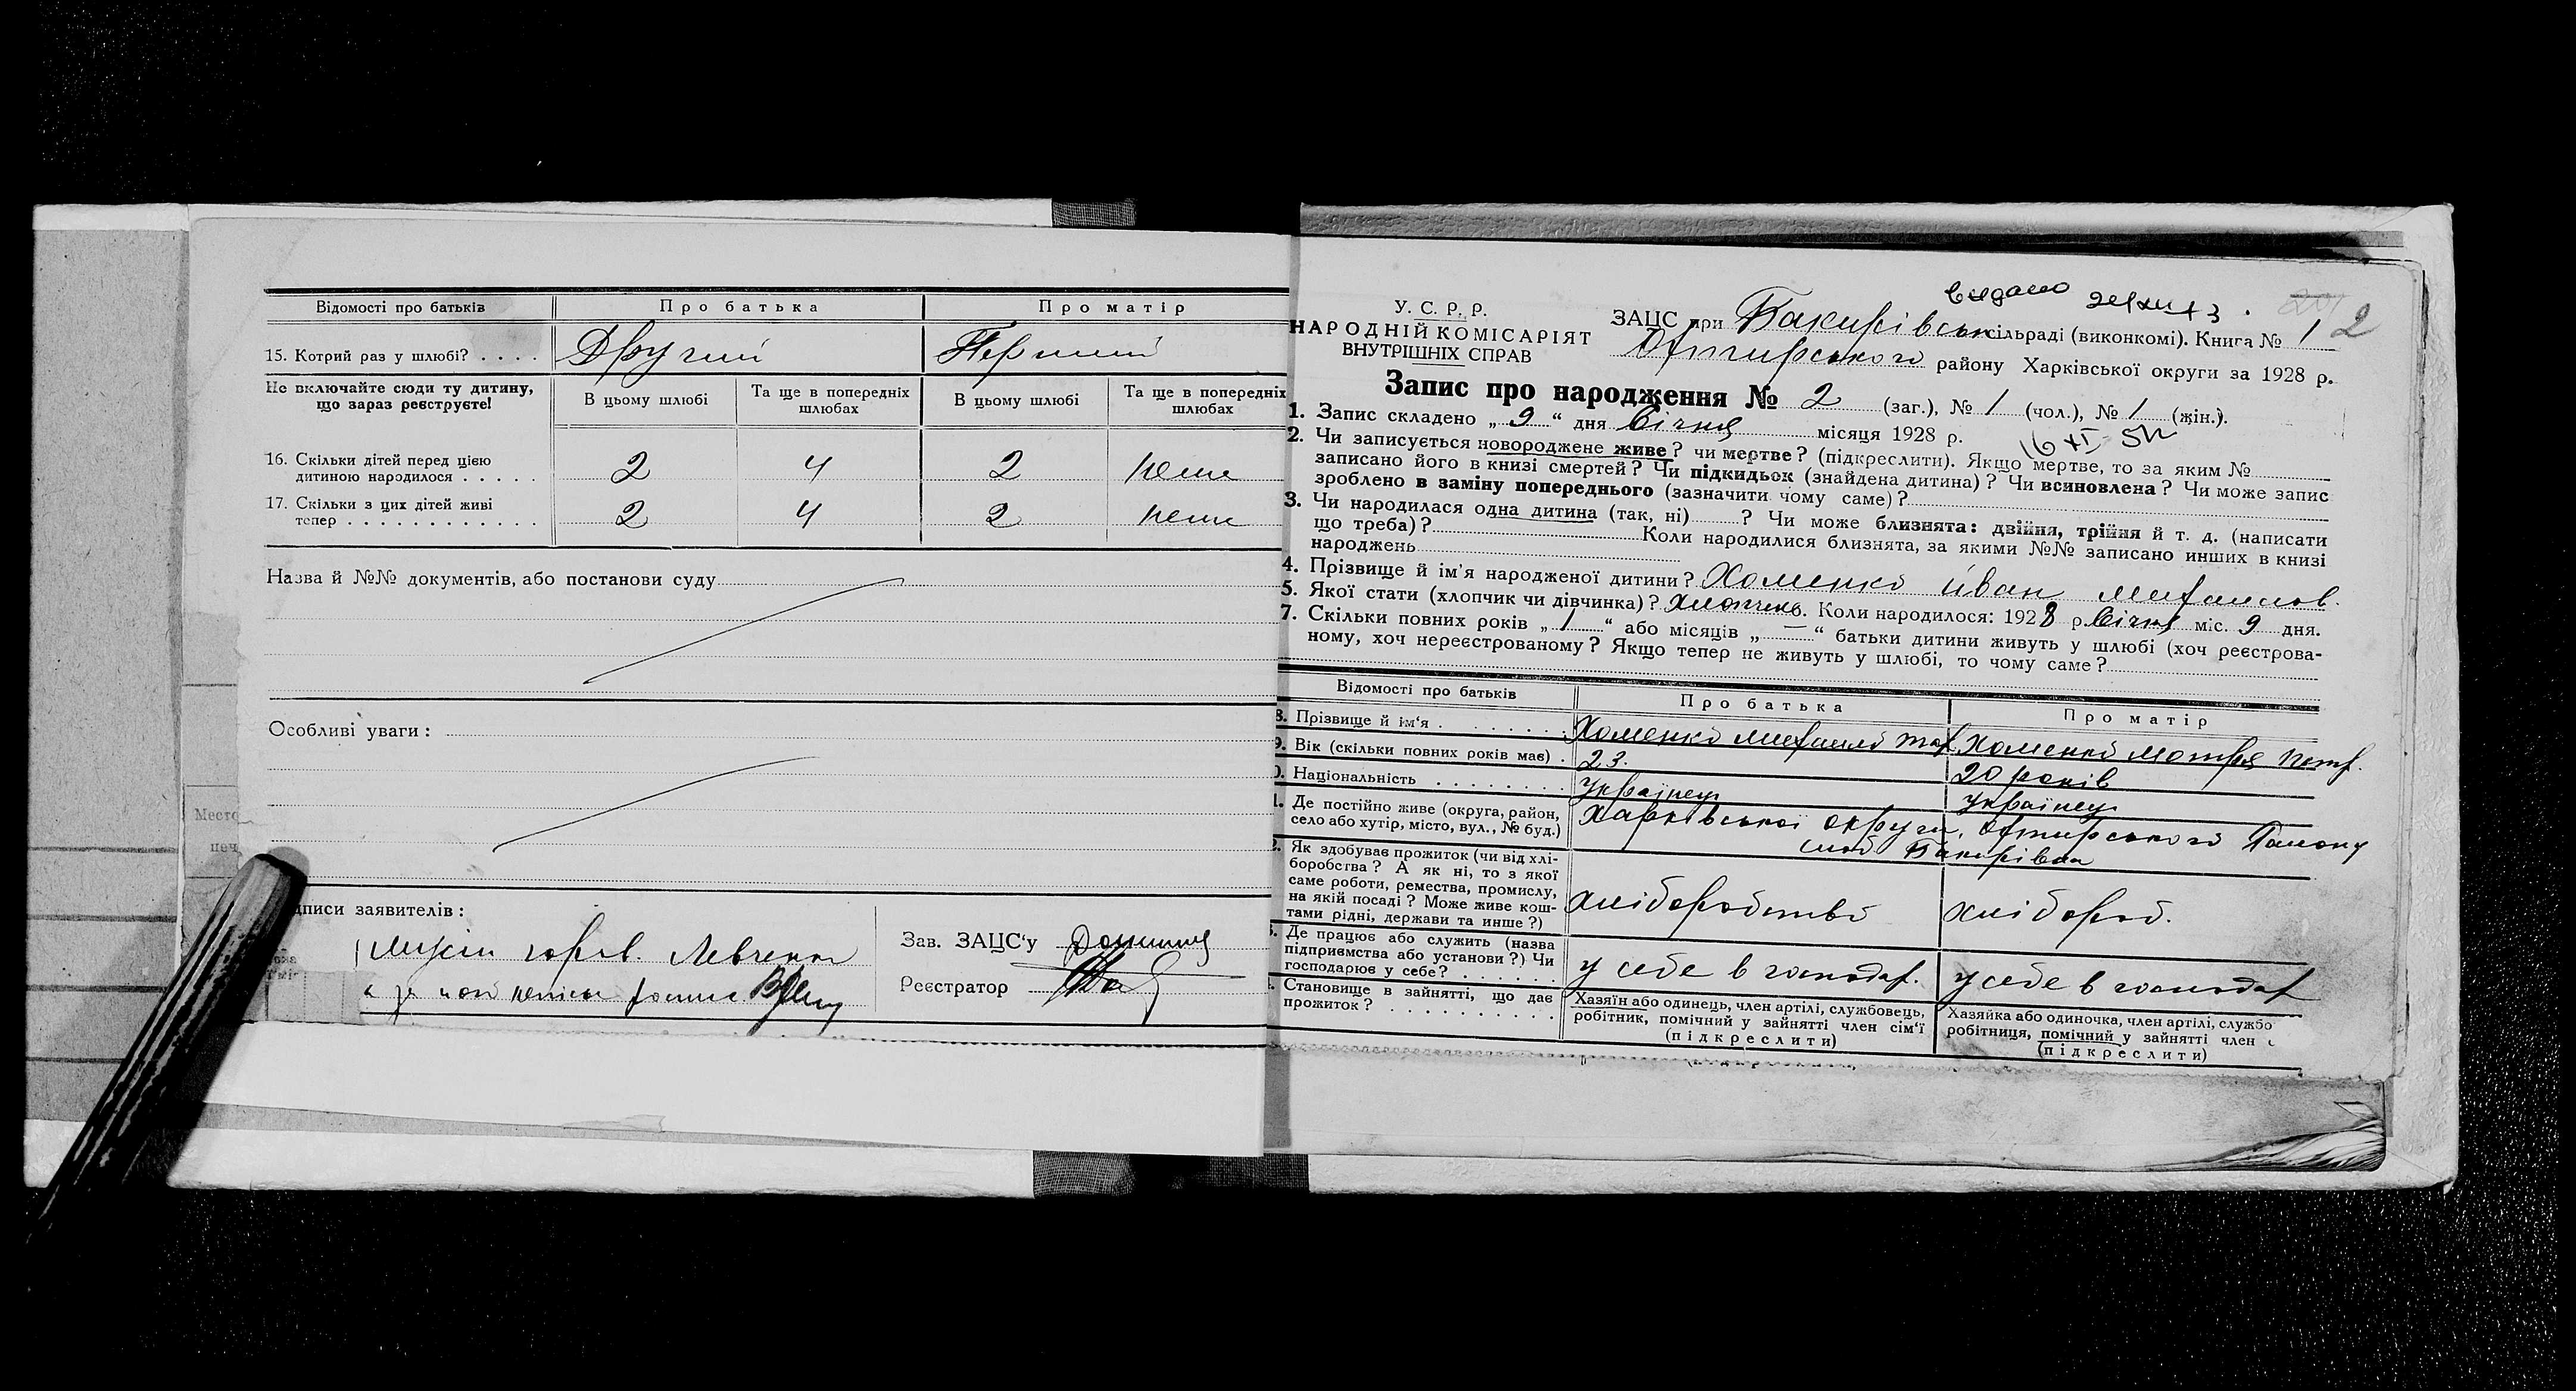 Відомості про батьків
Про батька
Про матір
15. Котрий раз у шлюбі? . . . .
Другий
Перший
Не включайте сюди ту дитину, що зараз реєструєте!
В цьому шлюбі
Та ще в попередніх шлюбах
В цьому шлюбі
Та ще в попередніх шлюбах
16. Скільки дітей перед цією
дитиною народилося . . . . .
2
4
2
нема
17. Скільки з цих дітей живі
тепер . . . . . . . . . . . .
2
4
2
нема
Назва й №№ документів, або постанови суду
Особливі уваги:
дписи заявителів:
Левченко
Зав. ЗАЦС'у
Реєстратор
Место
печ
У. С. Р. Р.
НАРОДНІЙ КОМІСАРІЯТ
ВНУТРІШНІХ СПРАВ
видано
2
ЗАЦС при Бакирівськ сільраді (виконкомі). Книга № 1
Охтирського району Харківської округи за 1928 р.
Запис про народження № 2 (заг.), № 1 (чол.), № 1 (жін.).
1. Запис складено „ 9 “ дня Січня місяця 1928 р.
16 XI
2. Чи записується новороджене живе? чи мертве? (підкреслити). Якщо мертве, то за яким №
записано його в книзі смертей? Чи підкидьок (знайдена дитина)? Чи всиновлена? Чи може запис
зроблено в заміну попереднього (зазначити чому саме)?
3. Чи народилася одна дитина (так, ні) ? Чи може близнята: двійня, трійня й т. д. (написати
що треба)? Коли народилися близнята, за якими №№ записано инших в книзі
народжень
4. Прізвище й ім'я народженої дитини? Хоменко Иван Михайлов.
5. Якої стати (хлопчик чи дівчинка)? Хлопчик 6. Коли народилося: 1928 р. Січня міс. 9 дня.
7. Скільки повних років „ 1 “ або місяців „ — “ батьки дитини живуть у шлюбі (хоч реєстрова-
ному, хоч нереєстрованому? Якщо тепер не живуть у шлюбі, то чому саме?
Відомості про батьків
Про батька
Про матір
8. Прізвище й ім'я . . . . . . .
Хоменко Михайло
Хоменко Мотря Петр.
9. Вік (скільки повних років має) .
23.
20 років
0. Національність . . . . . . . .
Українец
Українец
1. Де постійно живе (округа, район,
село або хутір, місто, вул., № буд.)
Харківської округи, Охтирського Району
слоб Бакирівка
2. Як здобуває прожиток (чи від хлі-
боробства? А як ні, то з якої
саме роботи, ремества, промислу,
на якій посаді? Може живе кош-
тами рідні, держави та инше?)
хліборобство
хлібороб.
3. Де працює або служить (назва
підприємства або установи?) Чи
господарює у себе? . . . . . .
у себе в господар.
у себе в господар
. Становище в зайнятті, що дає
прожиток? . . . . . . . . . .
Хазяїн або одинець, член артілі, службовець,
робітник, помічний у зайнятті член сім'ї
(підкреслити)
Хазяйка або одиночка, член артілі, службо
робітниця, помічний у зайнятті член с
(підкреслити)